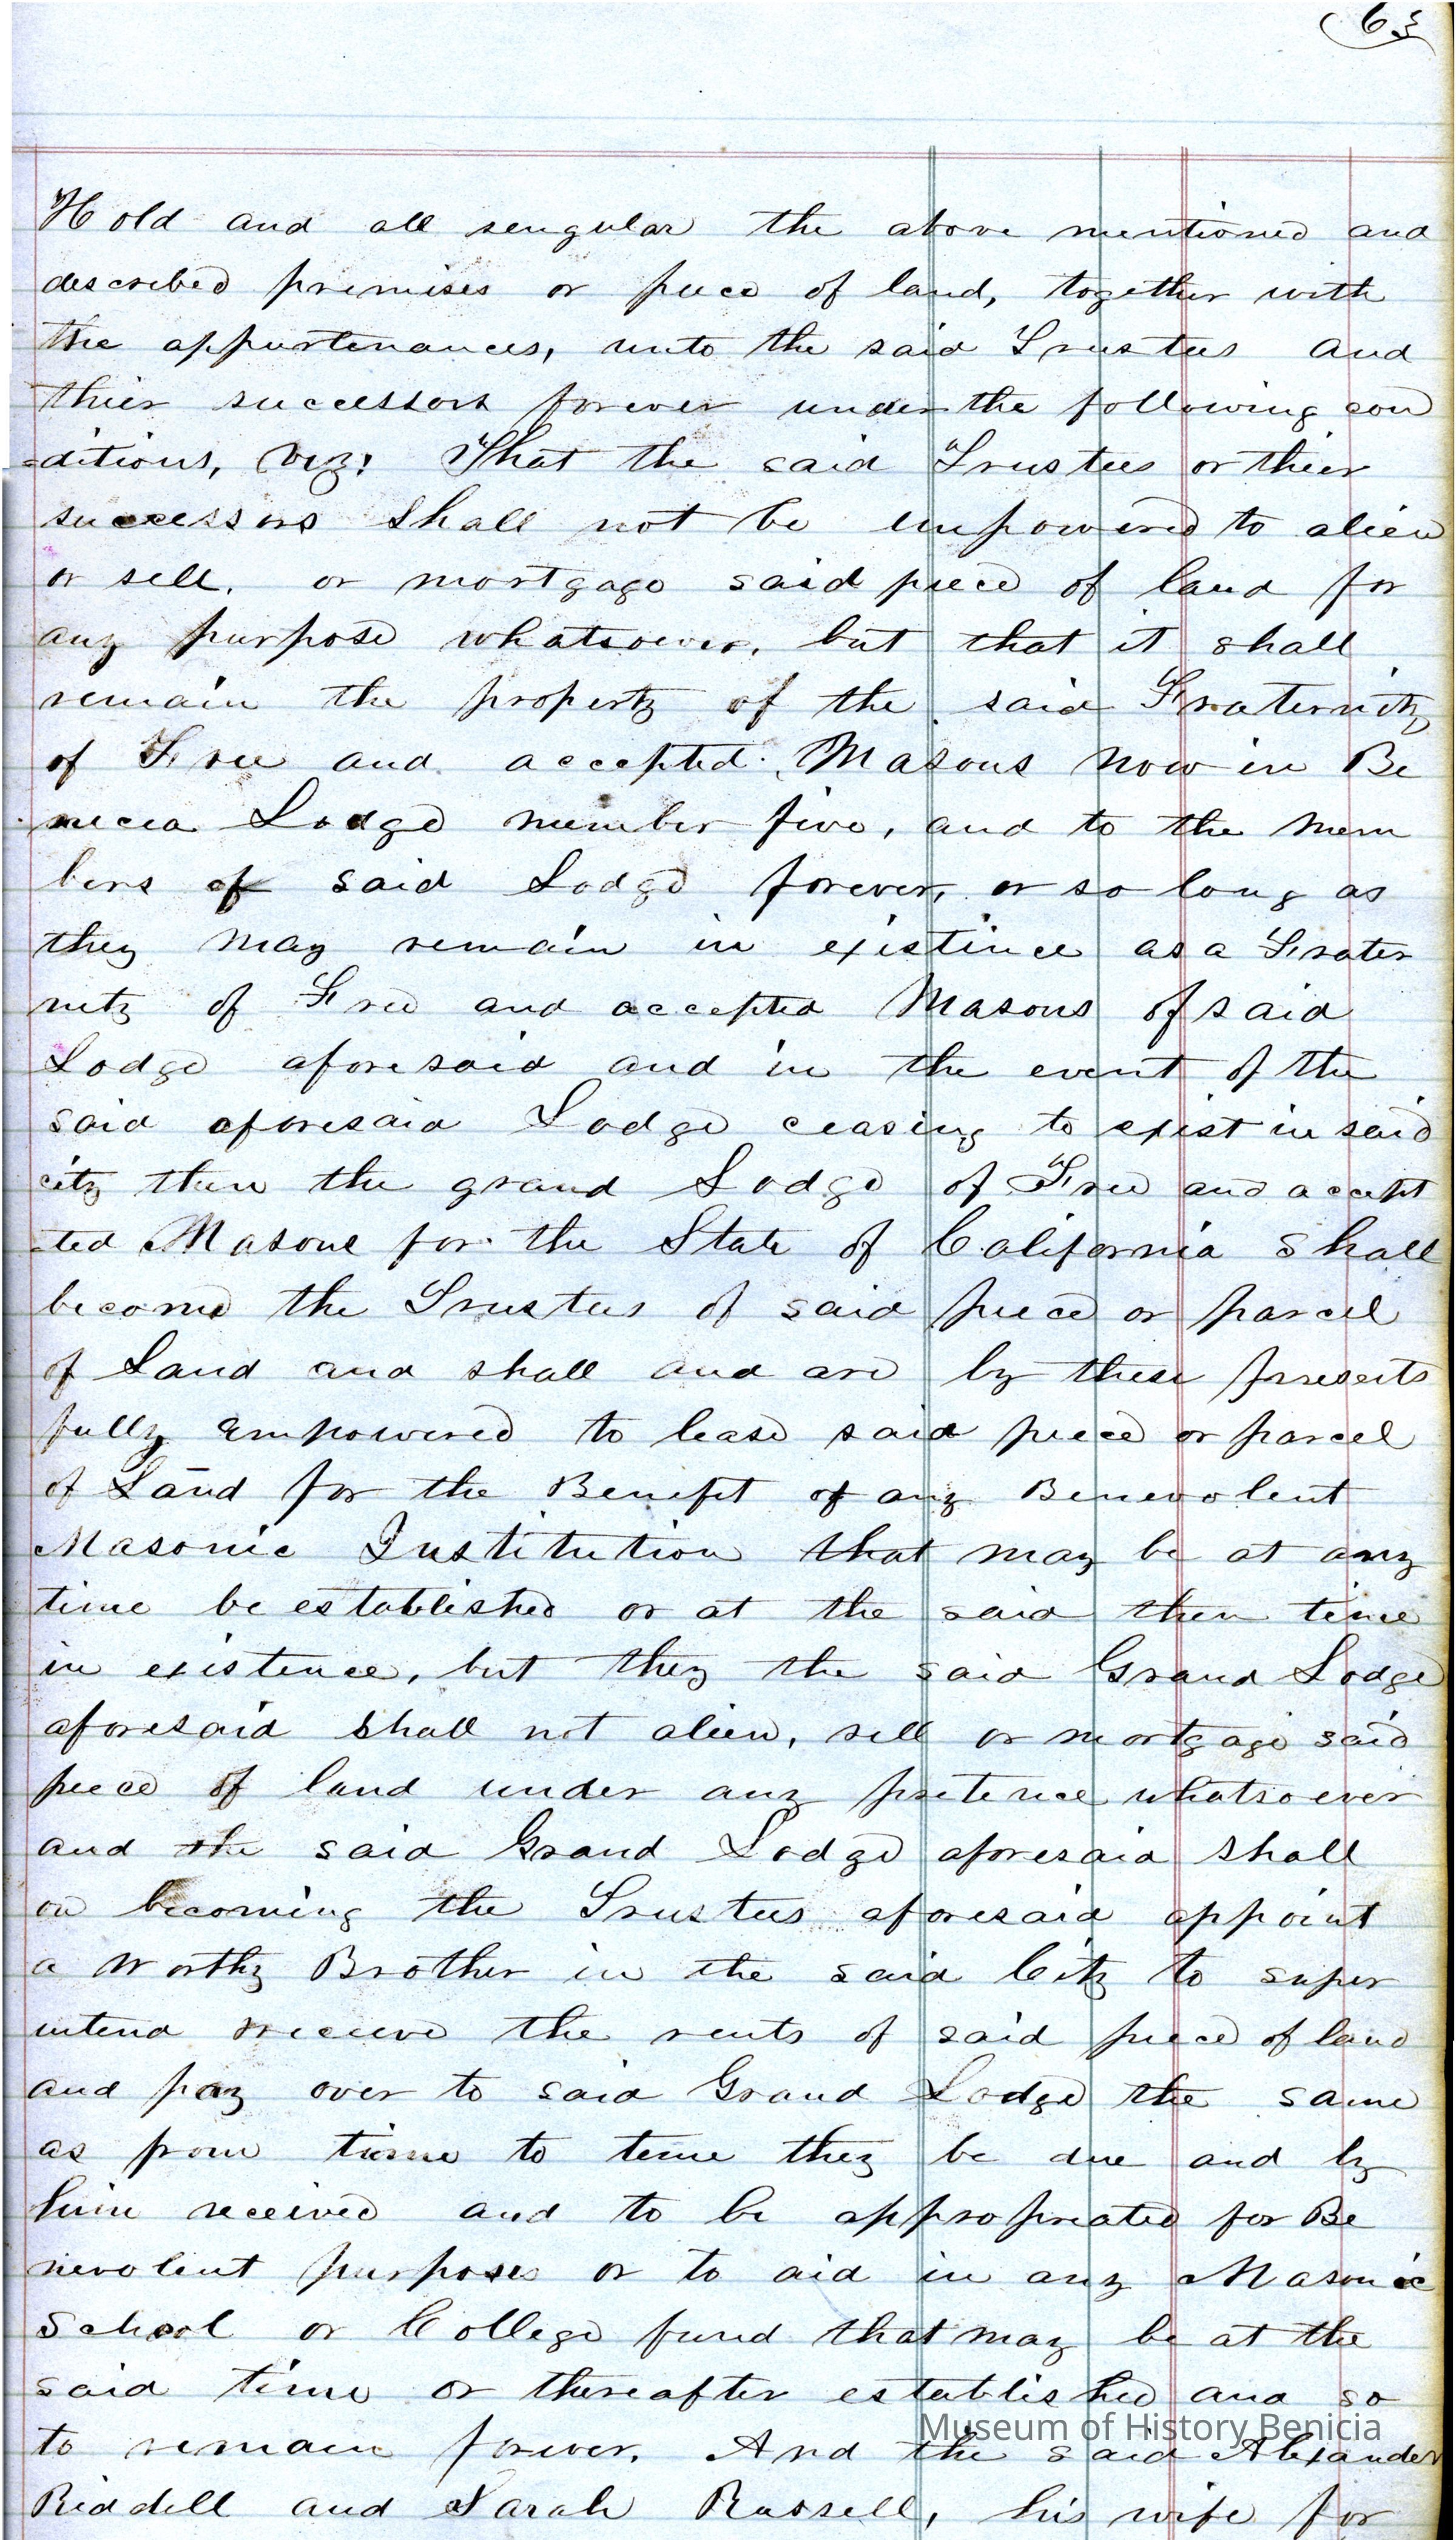 63
Hold and all sengular the above mentioned and
described premises or piece of land, together with
the appurtenances, unto the said Trustees and
thier successors forever under the following con
=ditions, viz: That the said Trustees or thier
successors shall not be empowered to alien
or sell, or mortgage said piece of land for
any purpose whatsoever, but that it shall
remain the property of the said Fraternity
of Free and accepted Masons now in Be
necia Lodge number five, and to the mem
bers of said Lodge forever, or so long as
they may remain in existince as a Frater
nity of Free and accepted Masons of said
Lodge aforesaid and in the event of the
said aforesaid Lodge ceasing to exist in said
city then the grand Lodge of Free and accept
ted Masons for the State of California shall
become the Trustees of said piece or parcel
of Land and shall and are by these presents
fully Empowered to lease said piece or parcel
of Land for the Benefit of any Benevolent
Masonic Institution that may be at any
time be established or at the said then time
in existence, but they the said Grand Lodge
aforesaid shall not alien, sell or mortgage said
piece of land under any pretence whatsoever
and the said Grand Lodge aforesaid shall
on becoming the Trustees aforesaid appoint
a worthy Brother in the said City to super
intend receive the rents of said piece of land
and pay over to said Grand Lodge the same
as from time to time they be due and by
him received and to be appropriated for Be
nevolent purposes or to aid in any Masonic
School or College fund that may be at the
said time or thereafter established and so
Museum of History Benicia
to remain forever. And the said Alexander
Riddell and Sarah Russell, his wife for